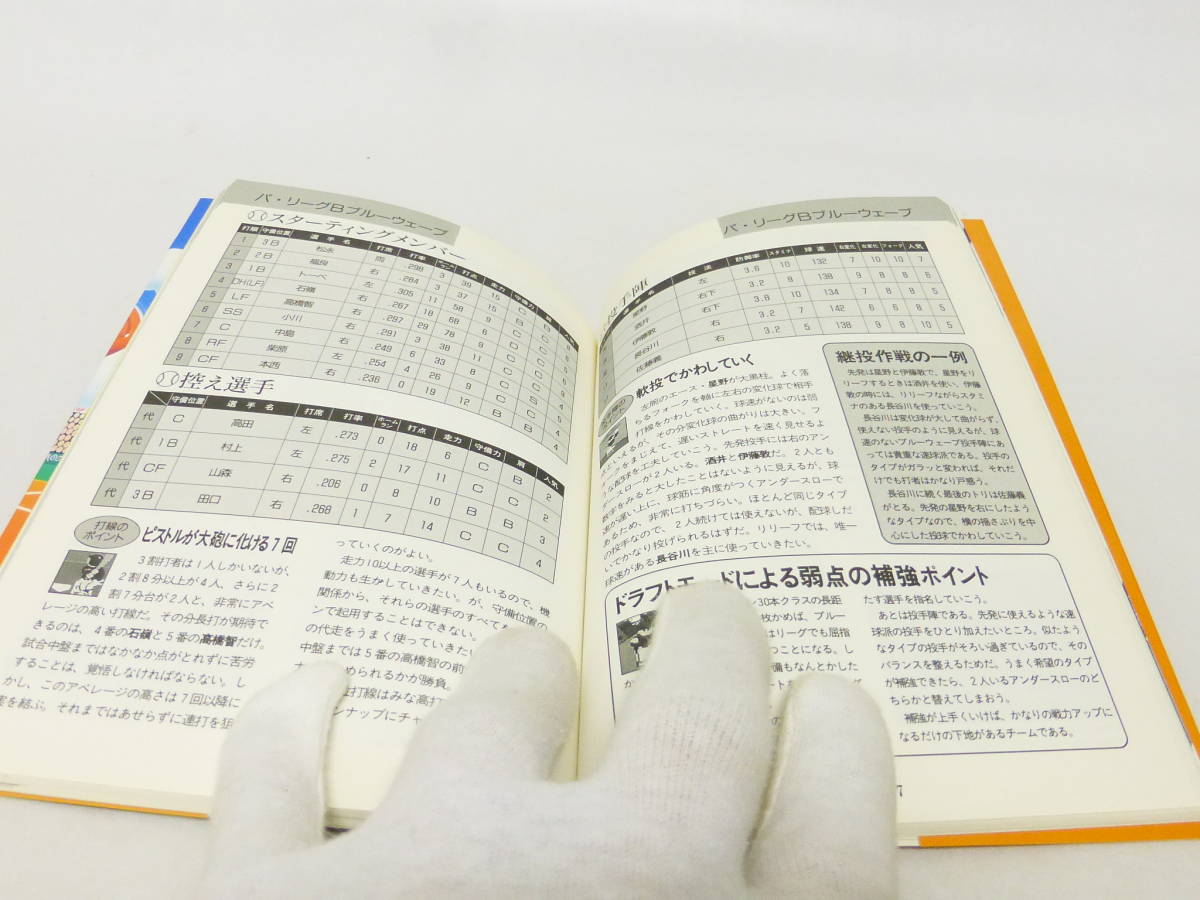 パ・リーグBブルーウェーブ
スターティングメンバー
打順 守備位置 選手名 打席 打率 ホームラン 打点 走力 守備力 肩 人気
1 3B 松永 両 .298 3 39 15
2 2B 福良 右 .284 3 37
3 1B トーベ 左 .305 11 58
4 DH(LF) 石嶺 右 .267 18 68
5 LF 高橋智 右 .297 29 78
6 SS 小川 右 .291 3 38
7 C 中島 右 .249 4 33
8 RF 柴原 左 .254 6 46
9 CF 本西 右 .236 0 19
控え選手
守備位置 選手名 打席 打率 ホームラン 打点 走力 守備力 肩 人気
代 C 高田 左 .273 0 18 6 C B 2
代 1B 村上 左 .275 2 17 11 C
代 CF 山森 右 .206 0 8 10 B
代 3B 田口 右 .268 1 7 14 C C 4
打線の
ポイント
ピストルが大砲に化ける7回
3割打者は1人しかいないが、
2割8分以上が4人、さらに2
割7分台が2人と、非常にアベ
レージの高い打線だ。その分長打が期待で
きるのは、4番の石嶺と5番の高橋智だけ。
試合中盤まではなかなか点がとれずに苦労
することは、覚悟しなければならない。し
かし、このアベレージの高さは7回以降に
実を結ぶ。それまではあせらずに連打を狙
っていくのがよい。
走力10以上の選手が7人もいるので、機
動力も生かしていきたい。が、守備位置の
関係から、それらの選手のすべてを
ンで起用することはできない。
の代走をうまく使っていきたい
中盤までは5番の高橋智の前
められるかが勝負。
打線はみな高打
ンナップにチャ
パ・リーグBブルーウェーブ
投手陣
名 投法 防御率 スタミナ 球速 右変化 左変化 フォーク 人気
星野 左 3.6 10 132 7 10 10 7
酒井 右下 3.2 8 138 9 8 8 5
伊藤敦 右下 3.6 10 134 7 8 8 5
長谷川 右 3.2 7 142 6 6 8 5
佐藤義 右 3.2 5 138 9 8 10 5
軟投でかわしていく
左腕のエース・星野が大黒柱。よく落
ちるフォークを軸に左右の変化球で相手
打線をかわしていく。球速がないのは弱
点といえるが、その分変化球の曲がりは大きい。フ
ォークをまじえて、遅いストレートを速く見せるよ
うな配球を工夫していこう。先発投手には右のアン
ダースローが2人いる。酒井と伊藤敦だ。2人とも
数字をみると大したことはないように見えるが、球
速が遅い上に、球筋に角度がつくアンダースローで
あるため、非常に打ちづらい。ほとんど同じタイプ
の投手なので、2人続けては使えないが、配球しだ
いでかなり投げられるはずだ。リリーフでは、唯一
球速がある長谷川を主に使っていきたい。
継投作戦の一例
先発は星野と伊藤敦で。星野を
リリーフするときは酒井を使い、伊藤
敦の時には、リリーフながらスタミ
ナのある長谷川を使っていこう。
長谷川は変化球が大して曲がらず、
使えない投手のように見えるが、球
速のないブルーウェーブ投手陣にあ
っては貴重な速球派である。投手の
タイプがガラッと変われば、それだ
けでも打者はかなり戸惑う。
長谷川に続く最後のトリは佐藤義
がとる。先発の星野を右にしたよう
なタイプなので、横の揺さぶりを中
心にした投球でかわしていこう。
ドラフトモードによる弱点の補強ポイント
30本クラスの長距
枚かめば、ブルー
はリーグでも屈指
つことになる。
備もなんとかした
ートを
たす選手を指名していこう。
あとは投手陣である。先発に使えるような速
球派の投手をひとり加えたいところ。似たよう
なタイプの投手がそろい過ぎているので、その
バランスを整えるためだ。うまく希望のタイプ
が補強できたら、2人いるアンダースローのど
ちらかと替えてしまおう。
補強が上手くいけば、かなりの戦力アップに
なるだけの下地があるチームである。
7